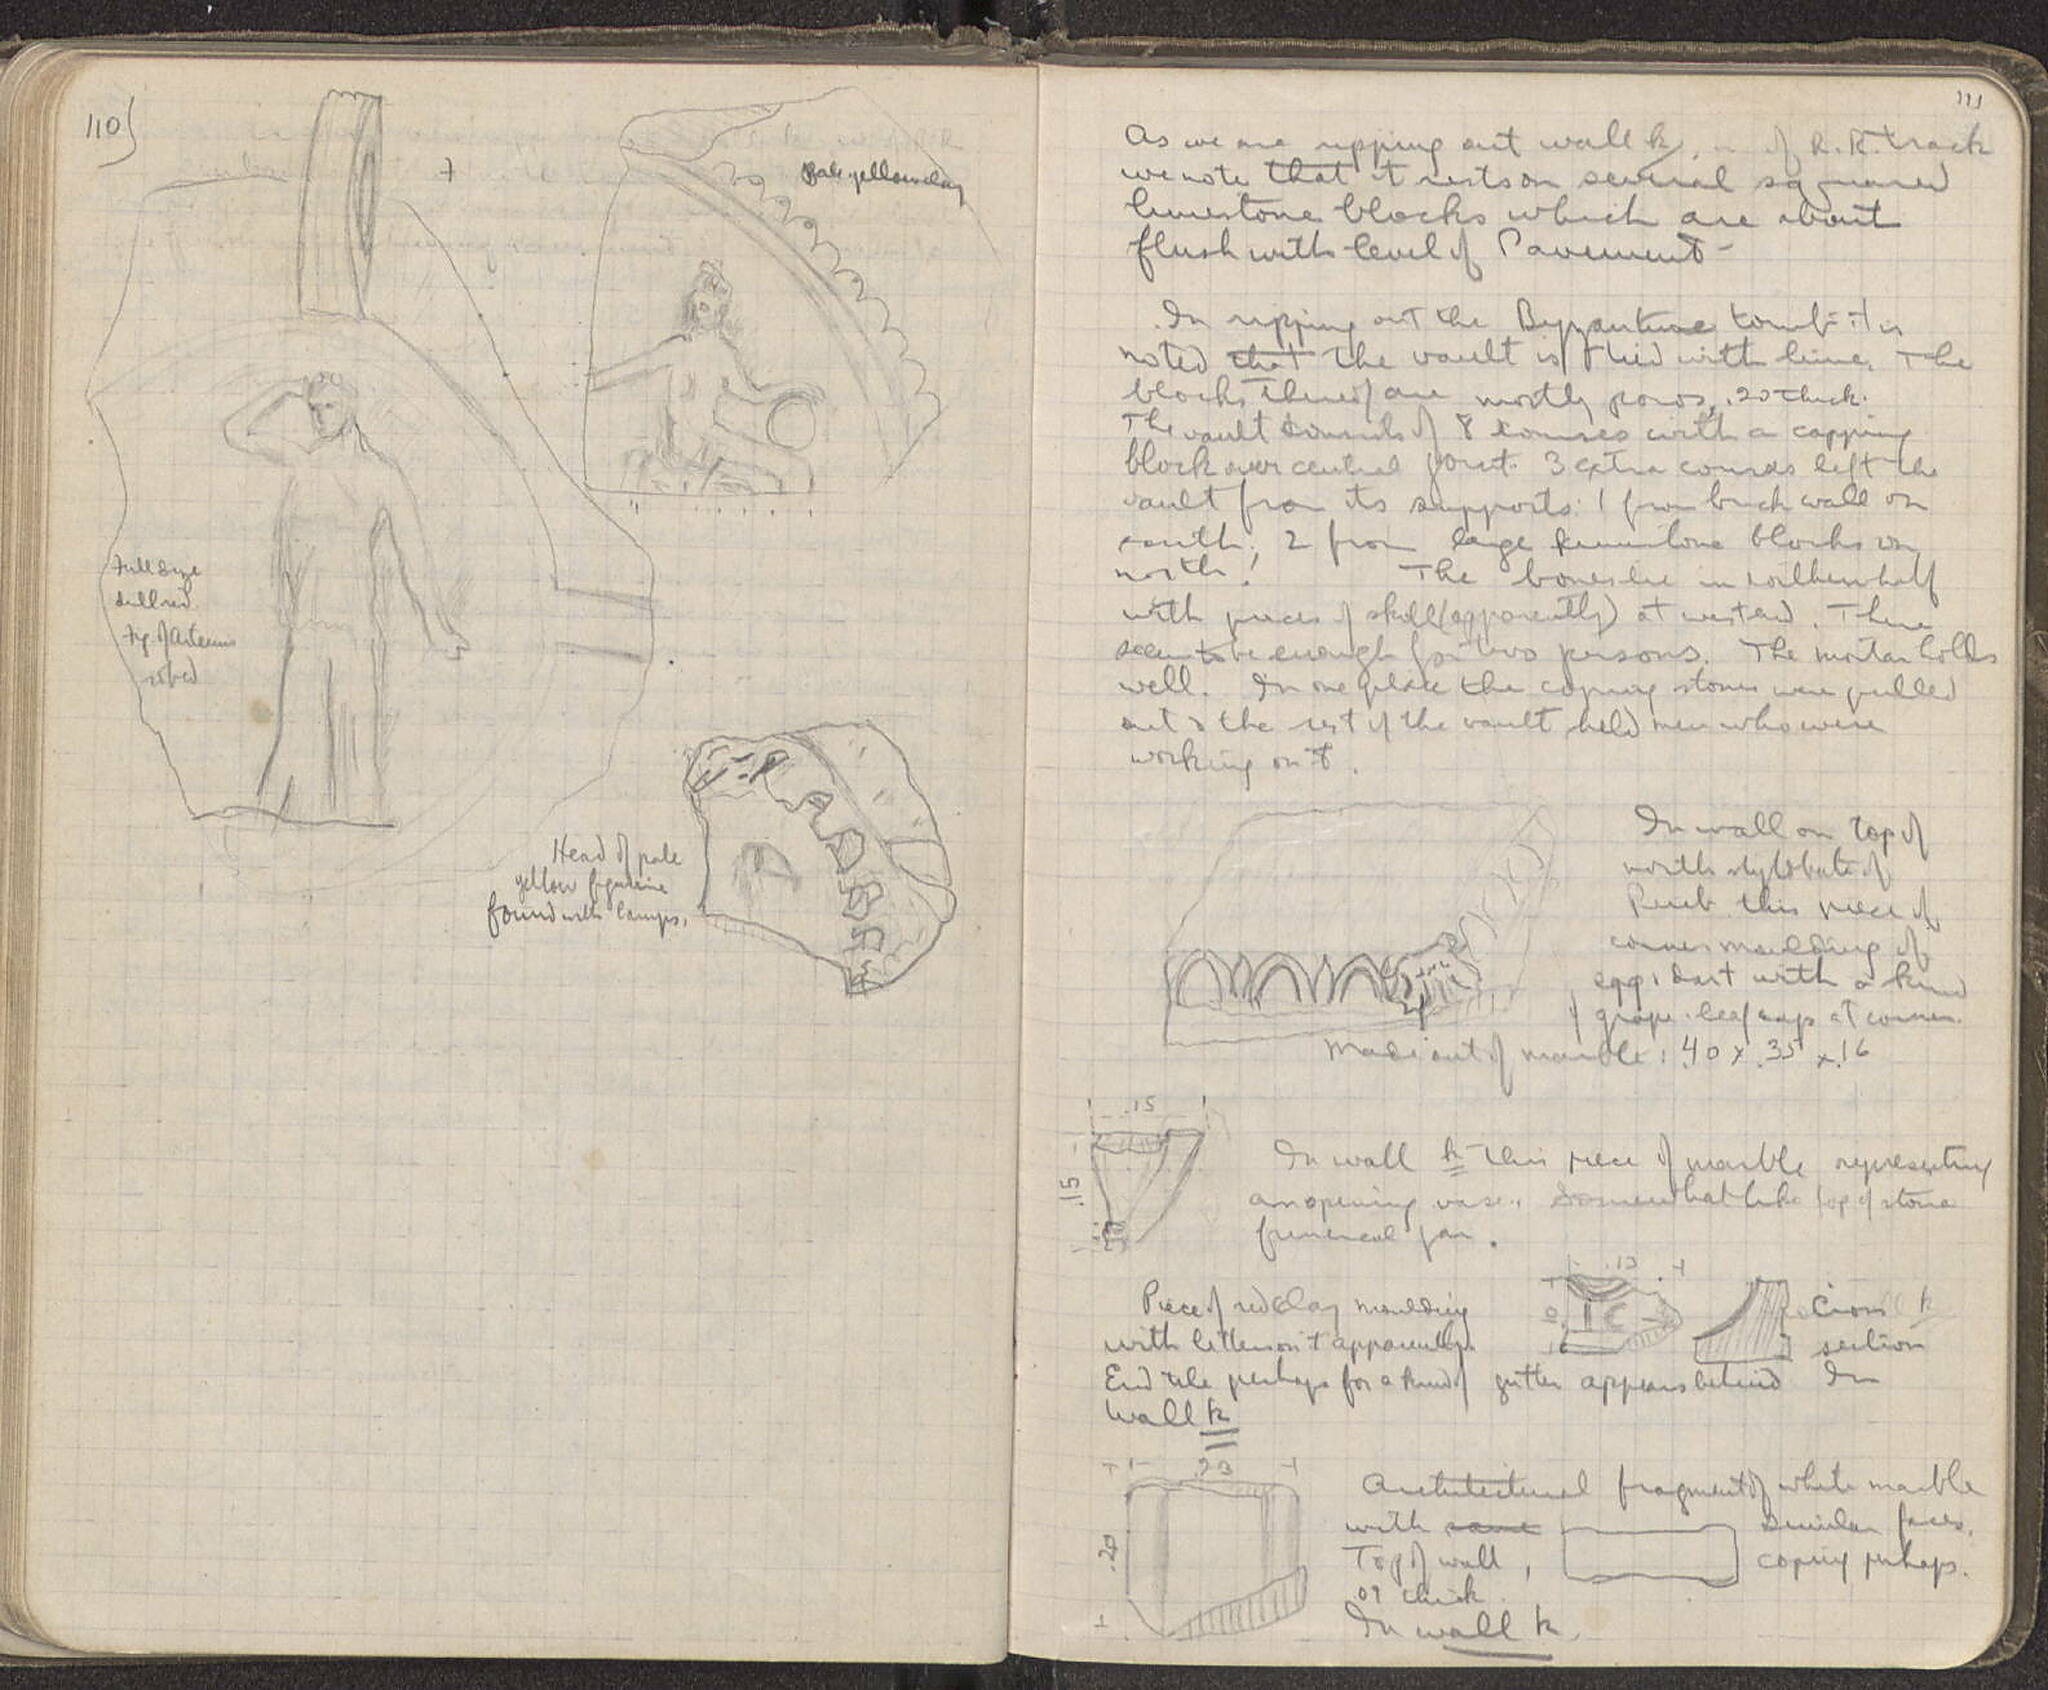 110)
7
Pale yellow clay
Full size
dull red
Fig. of Artemis
robed
Head of pale
yellow figurine
found with lamps.
111
As we are ripping out wall k, of R.R. track
we note that it rests on several squared
limestone blocks which are about
flush with level of Pavement -
In ripping out the Byzantine tomb it is
noted that the vault is with lime. The
blocks thereof are mostly poros, .20 thick.
The vault consists of 8 courses with a capping
block over central joint. 3 extra courses left the
vault from its supports: 1 from brick wall on
south; 2 from large limestone blocks on
north! The bones lie in southern half
with pieces of skull (apparently) at west end. There
seem to be enough for two persons. The mortar holds
well. In one place the coping stones were pulled
out & the rest of the vault held men who were
working on it.
In wall on top of
north stylobate of
Perib. this piece of
corner moulding of
egg & dart with a kind
of grape-leaf at corner.
Made out of marble: .40 x .35 x .16
.15
.15
In wall k this piece of marble representing
an opening vase. Somewhat like top of stone
funereal jar.
.13
Piece of red clay moulding
with letters on it apparently.
Cross
section
End tile perhaps for a kind of gutter appears behind In
wall k
.23
.20
Architectural fragment of white marble
with same similar faces.
Top of wall, coping perhaps.
.07 thick.
In wall k.